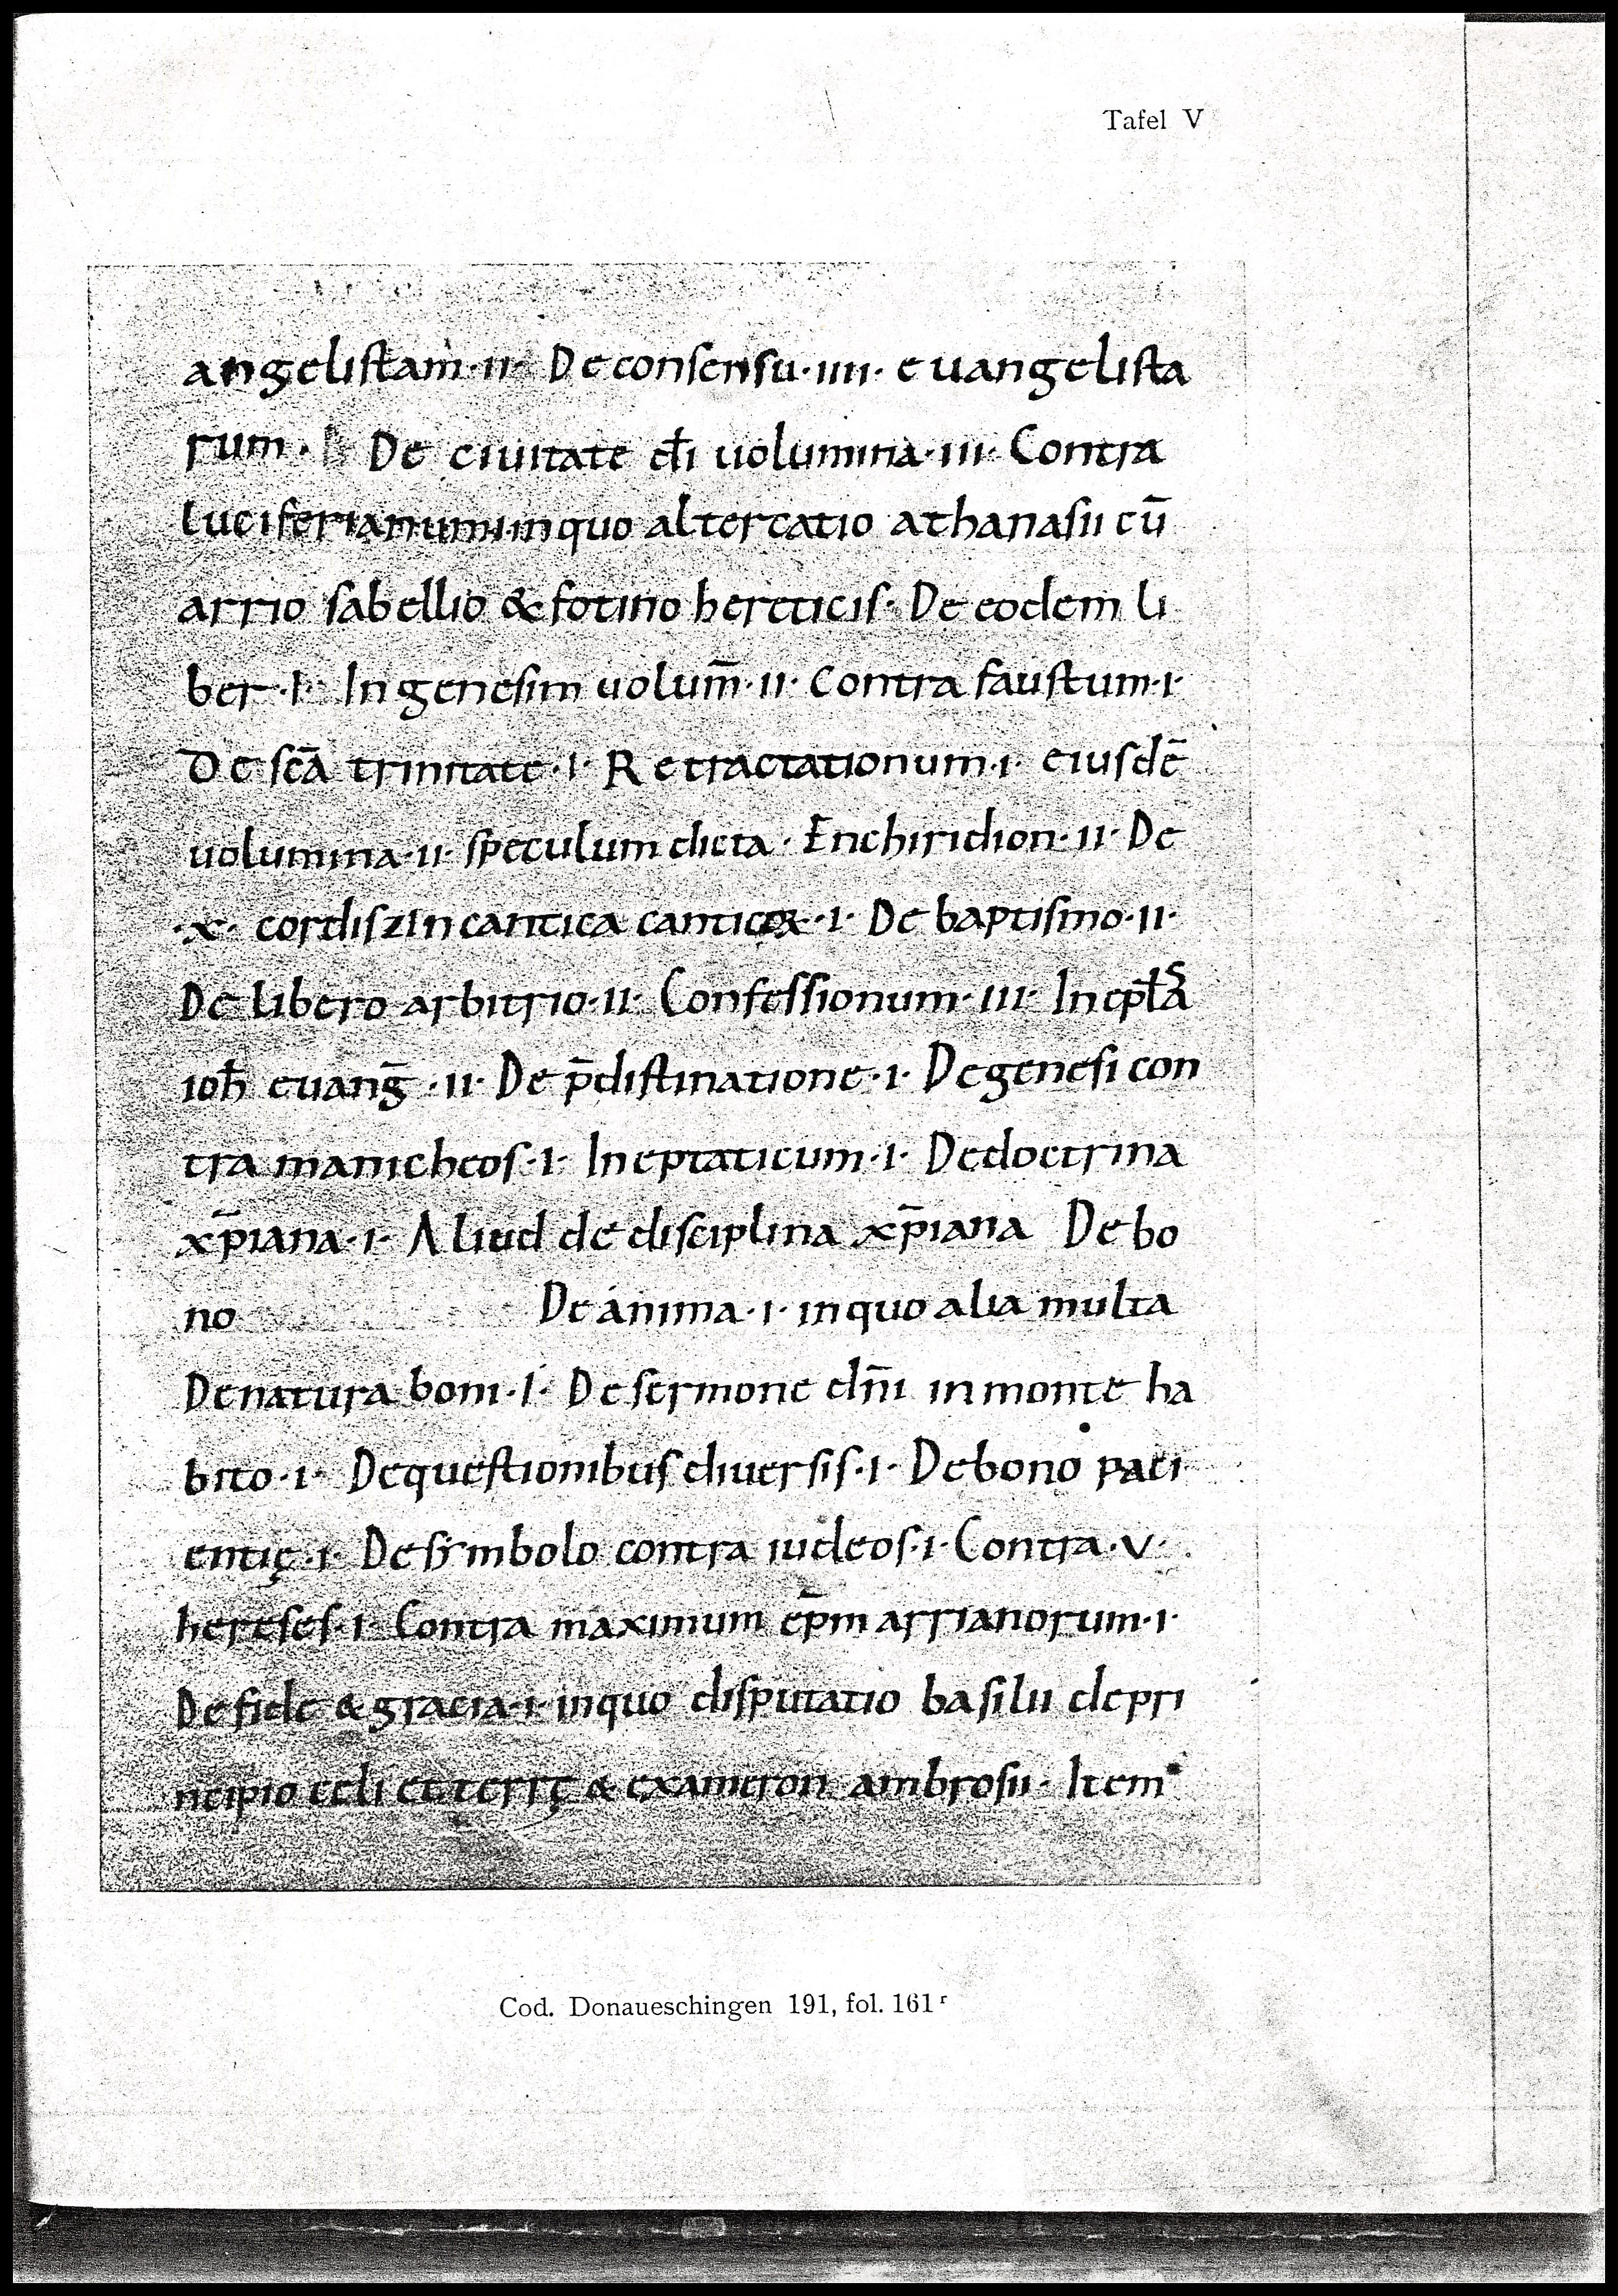 Tafel V
angelistam·II· De consensu·IIII· euangelista
rum· I· De ciuitate dī uolumina·III· Contra
luciferianum·inquo altercatio athanasii cū
arrio sabellio & fotino hereticis· De eodem li
ber·I· In genesim uolum̄·II· Contra faustum·I·
De scā trinitate·I· Retractationum·I· eiusdē
uolumina·II· speculum dicta· Enchiridion·II· De
·X· cordis In cantica canticoꝝ·I· De baptismo·II·
De libero arbitrio·II· Confessionum·III· In eptās
ioħ euanḡ·II· De p̄distinatione·I· De genesi con
tra manicheos·I· In eptaticum·I· De doctrina
xp̄iana·I· Aliud de disciplina xp̄iana De bo
no De anima·I· inquo alia multa
De natura boni·I· De sermone dn̄i in monte ha
bito·I· De questionibus diuersis·I· De bono paci
entię·I· De symbolo contra iudeos·I· Contra·V·
hereses·I· Contra maximum ep̄m arrianorum·I·
De fide & gracia·I· inquo disputatio basilii de pri
ncipio celi et terrę & exameron ambrosii· Item
Cod. Donaueschingen 191, fol. 161ʳ